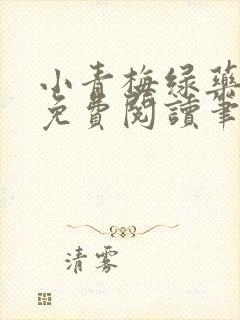 小青梅绿药
免費閱讀筆
清雾